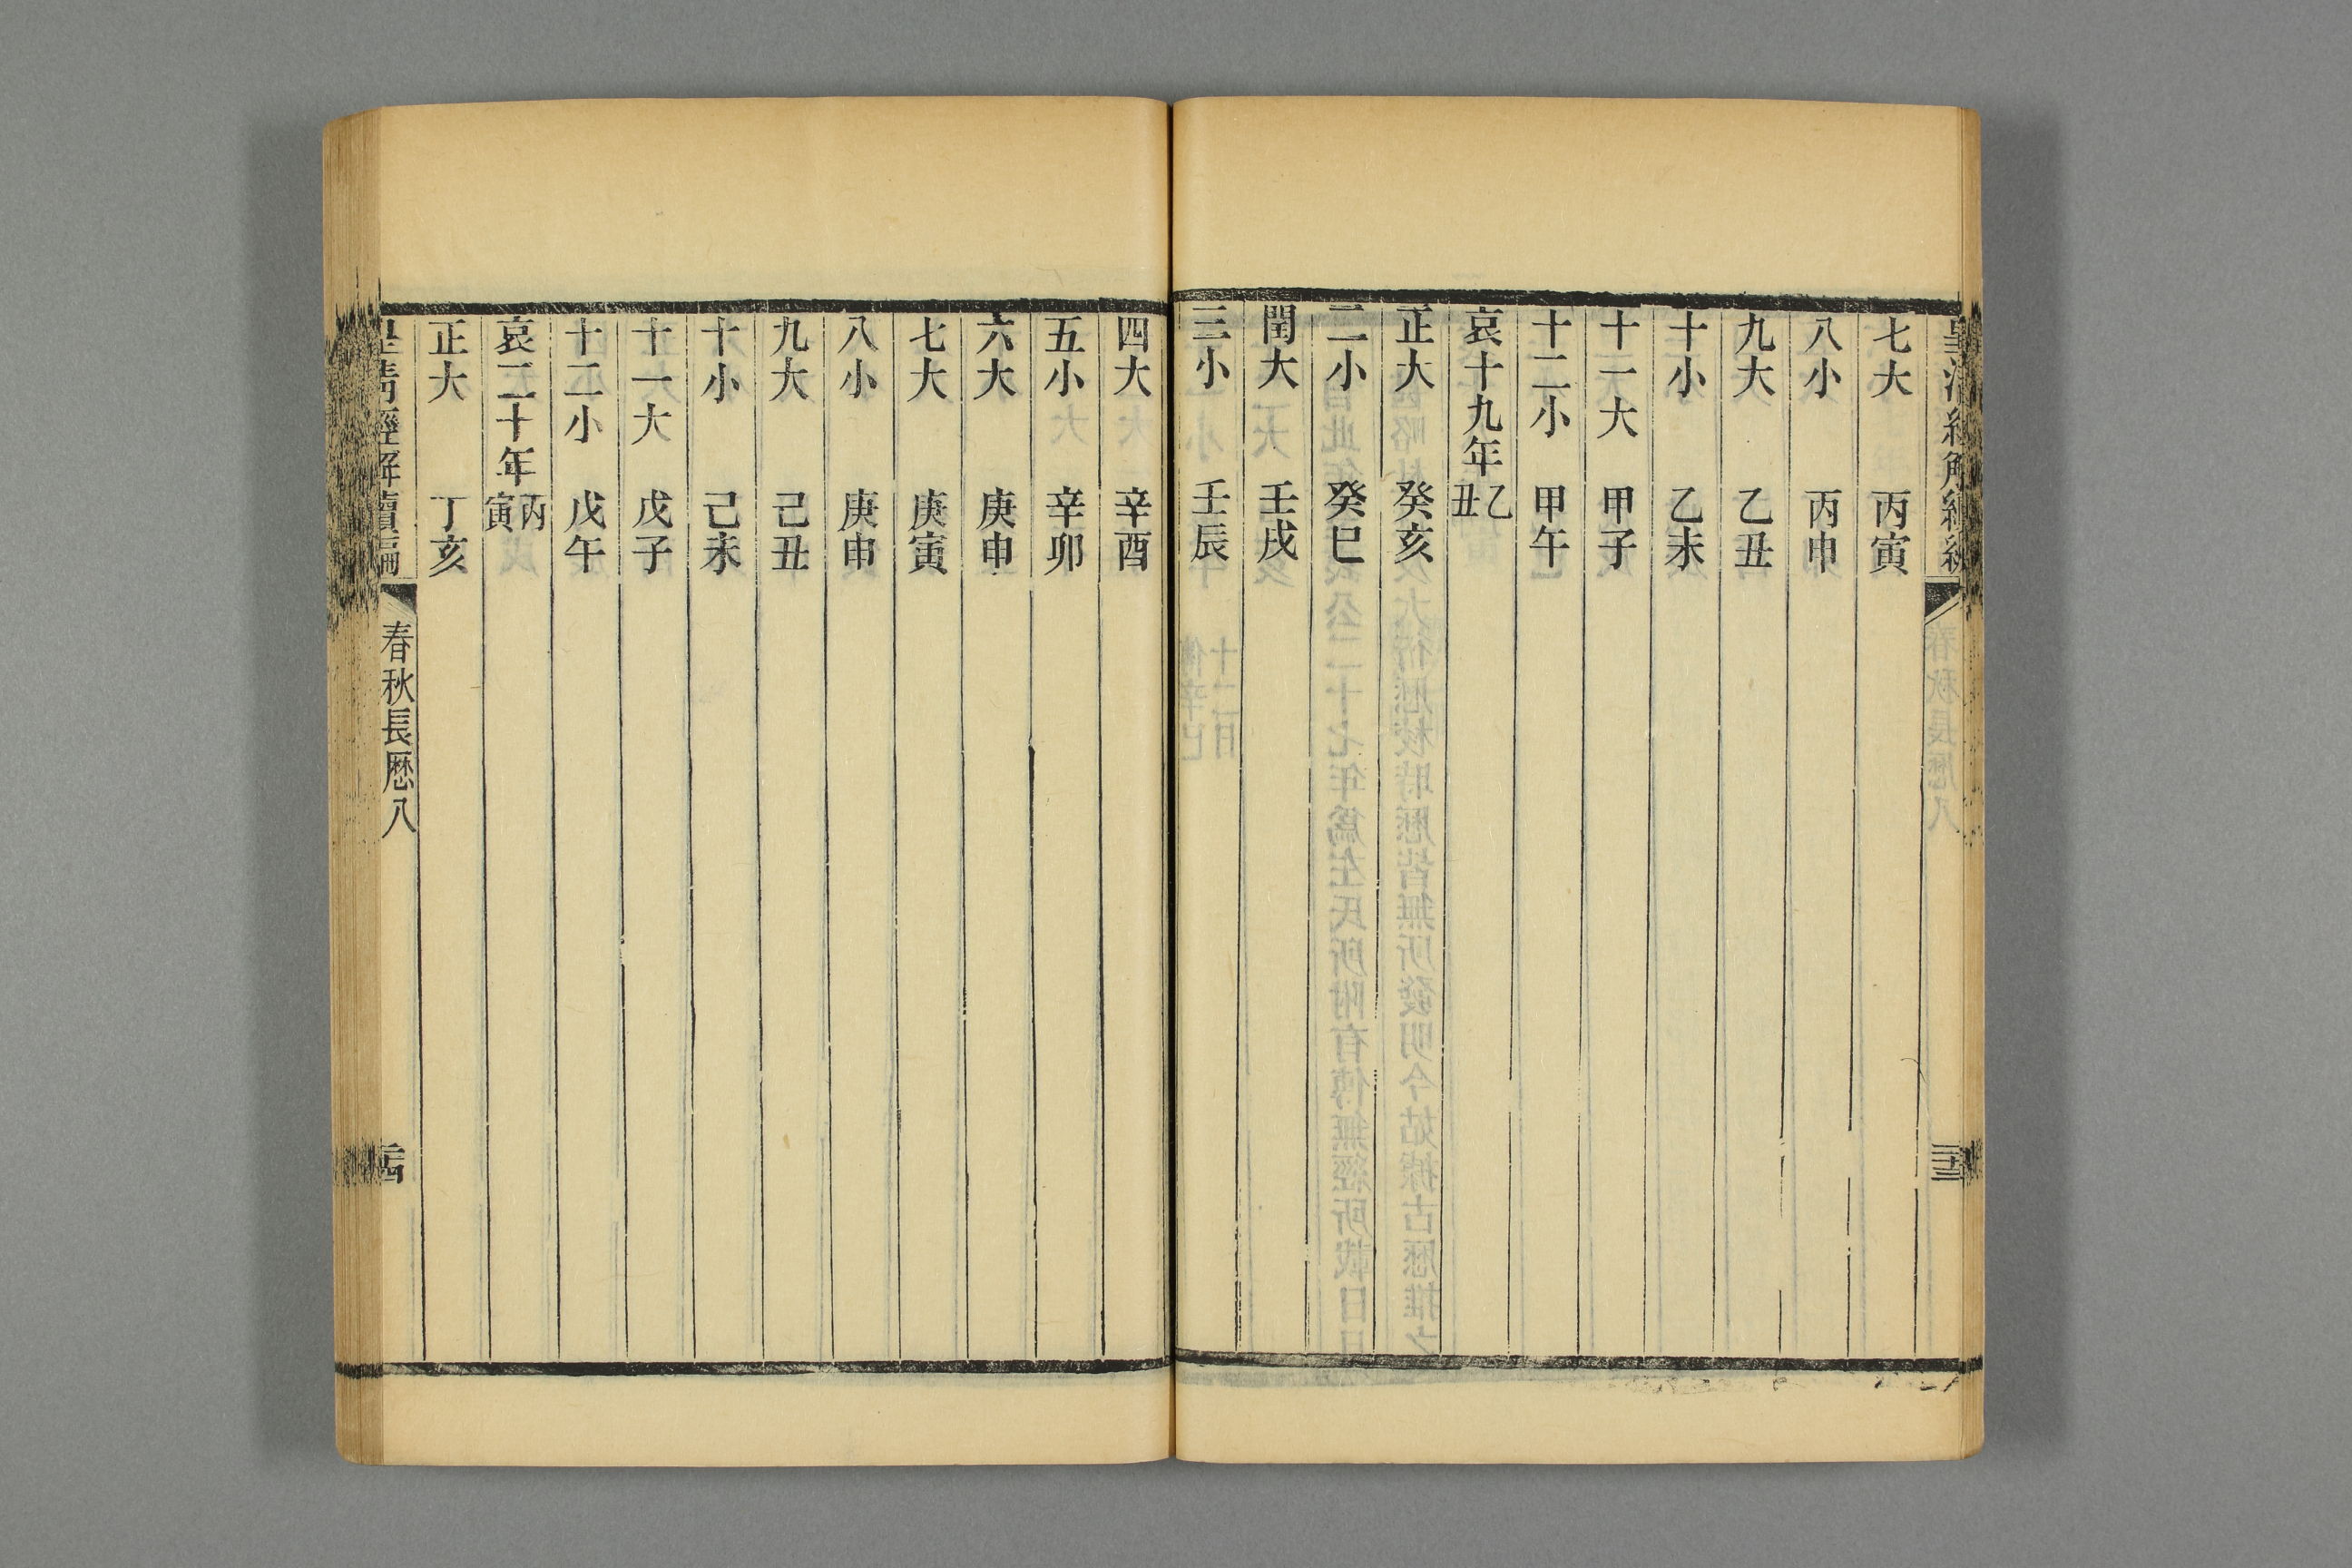 七大 丙寅
八小 丙申
九大 乙丑
十小 乙未
十一大 甲子
十二小 甲午
哀十九年 乙丑
正大 癸亥
二小 癸巳
閏大 壬戌
三小 壬辰
四大 辛酉
五小 辛卯
六大 庚申
七大 庚寅
八小 庚申
九大 己丑
十小 己未
十一大 戊子
十二小 戊午
哀二十年 丙寅
正大 丁亥
皇清經解續編
春秋長厯八